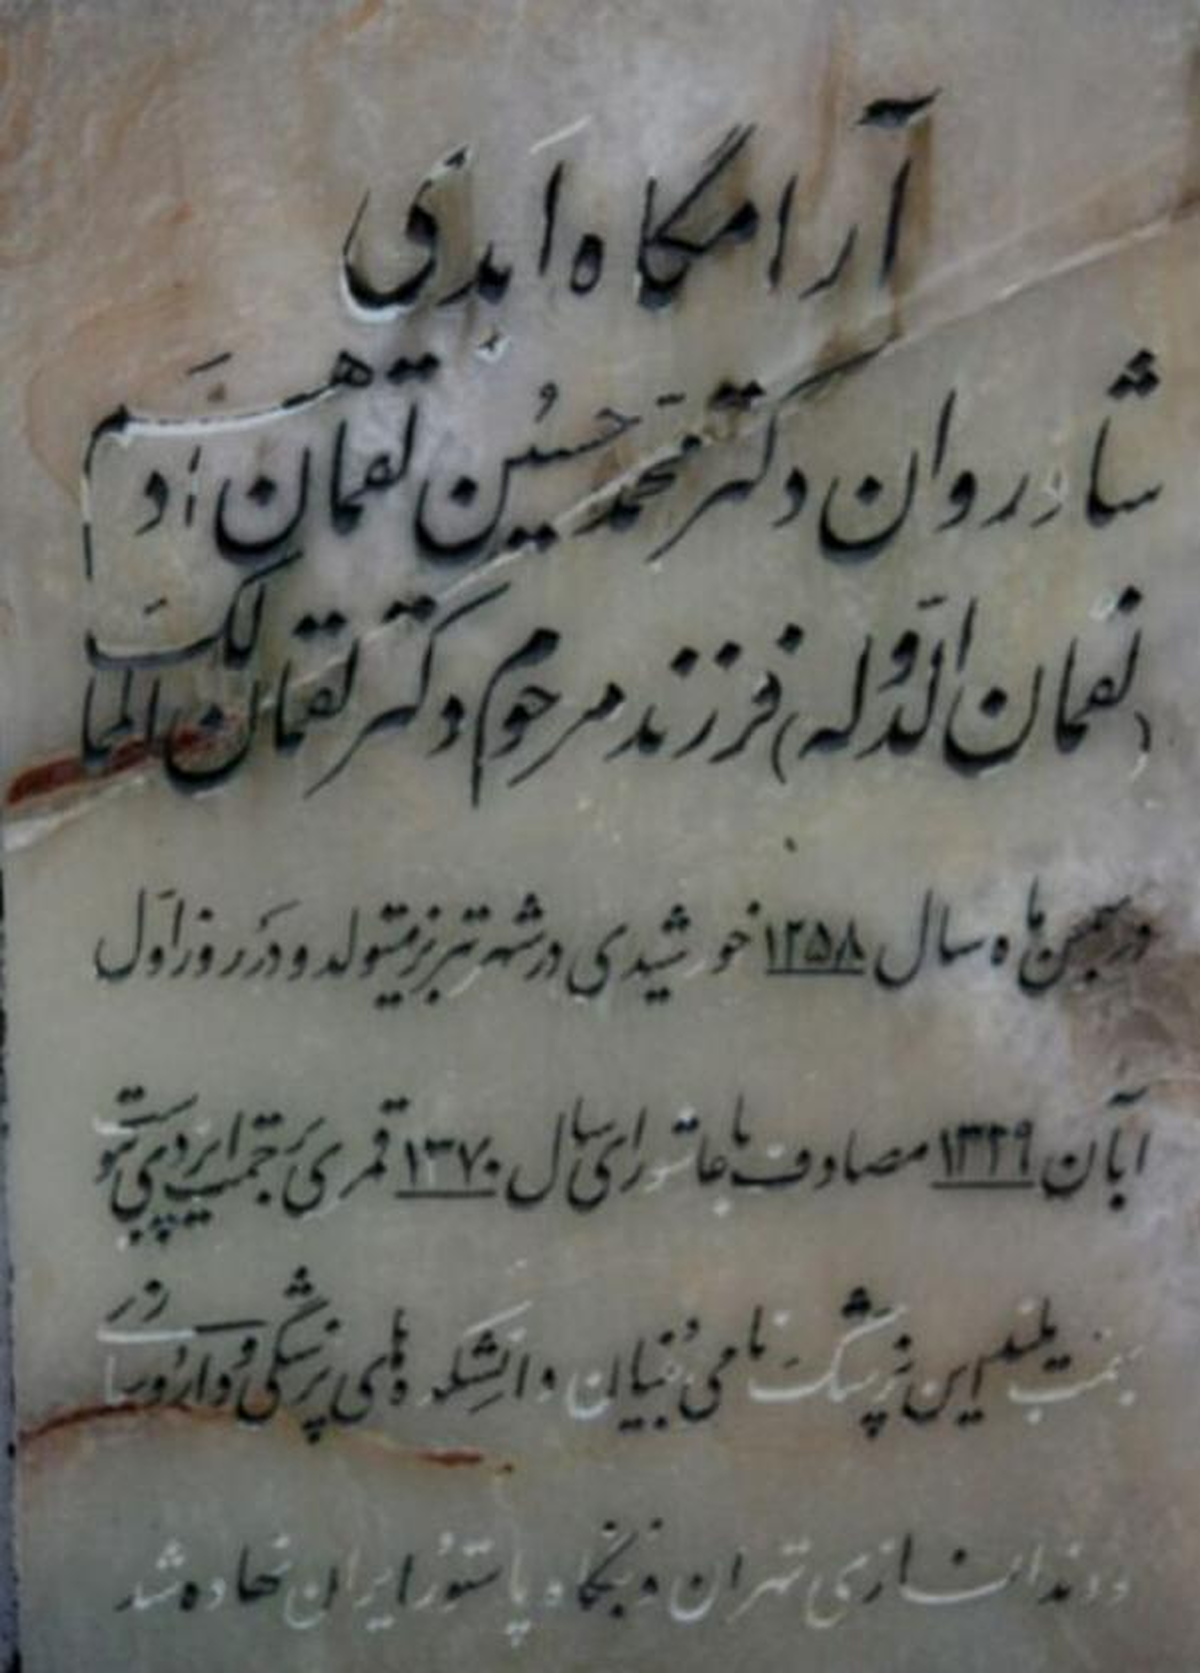 آرامگاه ابدی
شادروان دکتر محمد حسین لقمان ادهم
(لقمان الدوله) فرزند مرحوم دکتر لقمان الممالک
در بهمن ماه سال ۱۲۵۸ خورشیدی در شهر تبریز متولد و در روز اول
آبان ۱۳۲۹ مصادف با عاشورای سال ۱۳۷۰ قمری برحمت ایزدی پیوست
بهمت بلند این پزشک نامی بنیان دانشکده های پزشکی و داروسازی
و دندانسازی تهران و بنگاه پاستور ایران نهاده شد